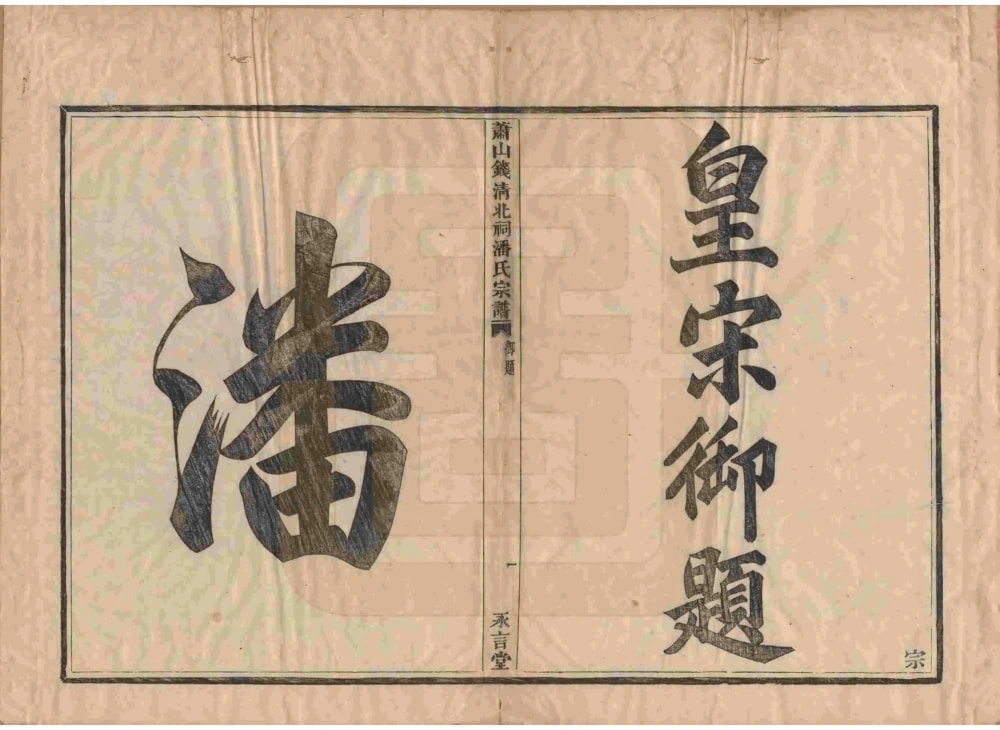 皇宗御題
宗
蕭山錢淸北祠潘氏宗譜
御題
一
永言堂
潘